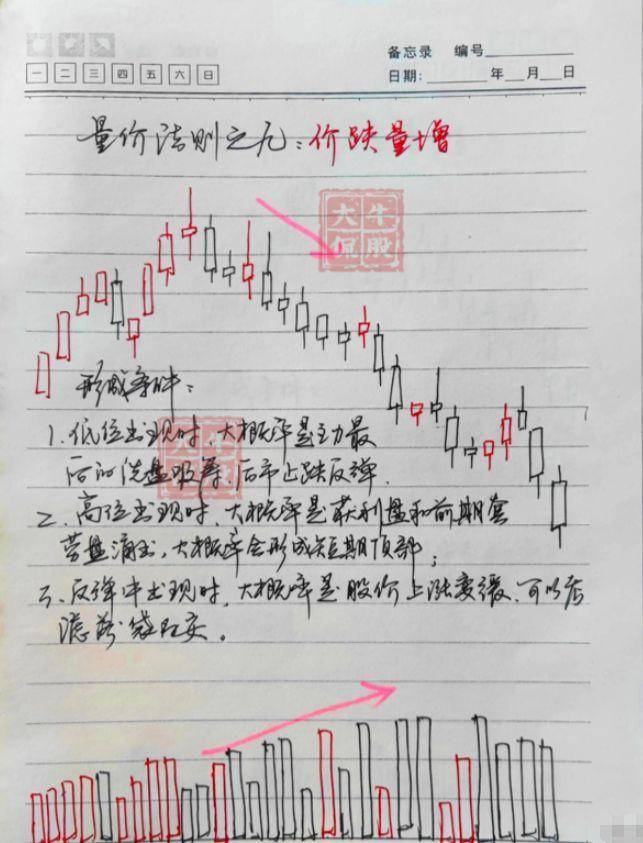 备忘录 编号
一 二 三 四 五 六 日
日期: 年 月 日
量价法则之九：价跌量增
大牛
侃股
形成条件：
1.低位出现时，大概率是主力最
后的洗盘吸筹，后市止跌反弹.
大牛
2.高位出现时，大概率是获利盘和前期套
牢盘涌出，大概率会形成短期顶部；
3.反弹中出现时，大概率是股价上涨变缓，可以考
虑落袋为安。